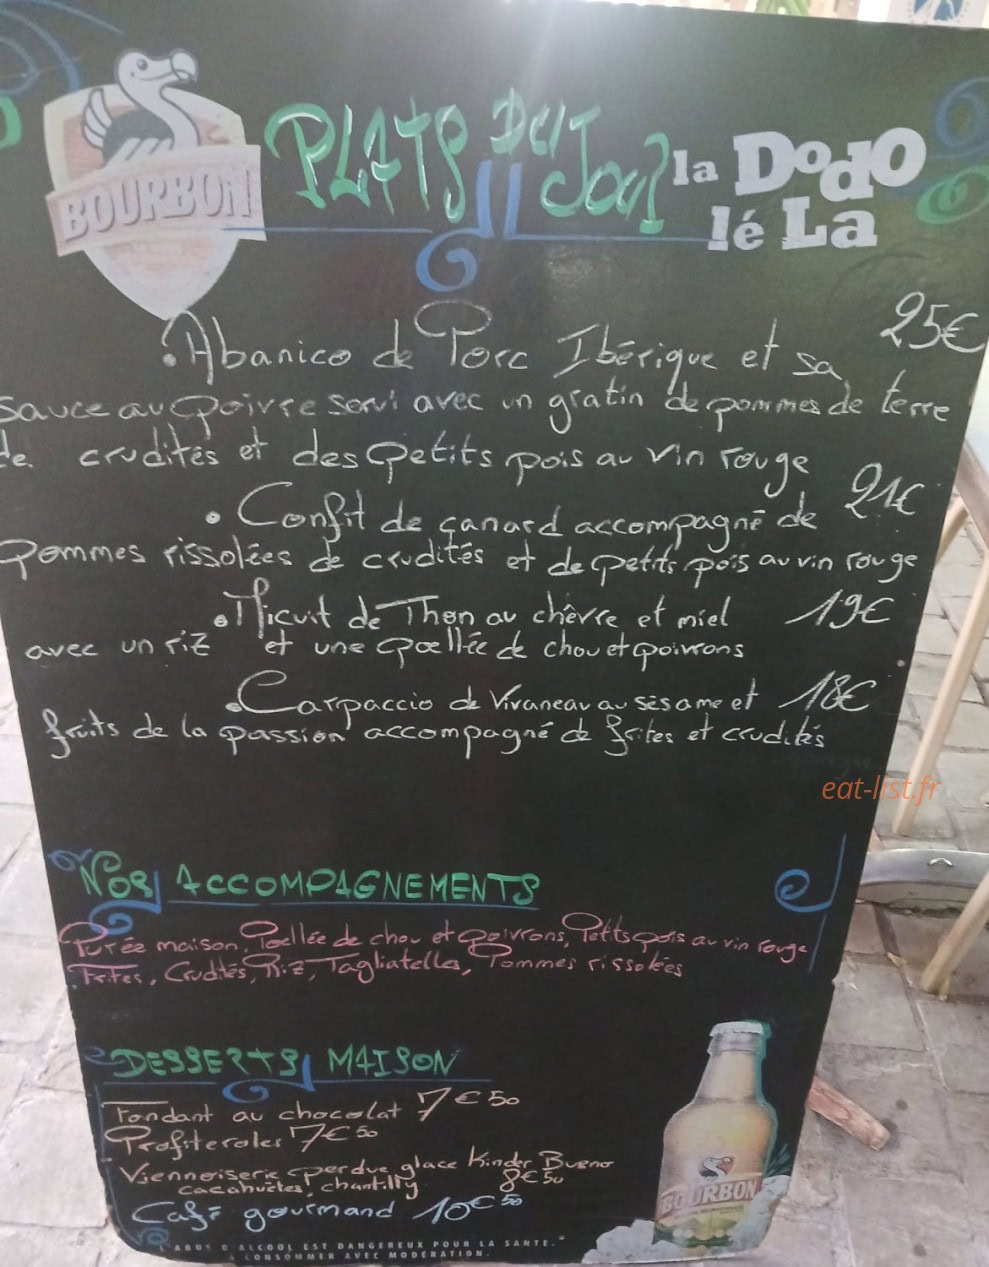 BOURBON
PLATS DU JOUR
la DoDo
lé La
• Abanico de Porc Ibérique et sa 25€
sauce au poivre servi avec un gratin de pommes de terre
de crudités et des petits pois au vin rouge
• Confit de canard accompagné de 21€
pommes rissolées de crudités et de petits pois au vin rouge
• Micuit de Thon au chèvre et miel 19€
avec un riz et une poellée de chou et poivrons
• Carpaccio de Vivaneau au sésame et 18€
fruits de la passion accompagné de frites et crudités
eat-list.fr
NOS ACCOMPAGNEMENTS
Purée maison, Poellée de chou et poivrons, Petits pois au vin rouge
Frites, Crudités, Riz, Tagliatelles, Pommes rissolées
DESSERTS MAISON
Fondant au chocolat 7€50
Profiteroles 7€50
Viennoiserie perdue, glace Kinder Bueno
cacahuètes, chantilly 8€50
Café gourmand 10€50
BOURBON
"L'ABUS D'ALCOOL EST DANGEREUX POUR LA SANTE."
A CONSOMMER AVEC MODERATION.